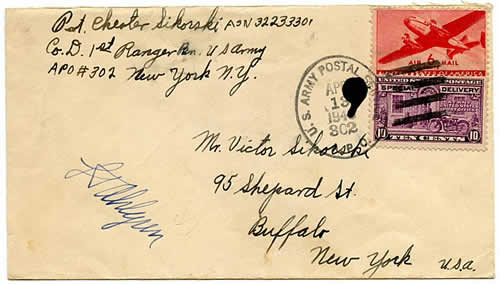 Pvt. Chester Sikorski ASN 32233301
Co. D. 1st Ranger Bn. US Army
APO #302 New York N.Y.
6
AIR MAIL
UNITED STATES POSTAGE
SPECIAL DELIVERY
10 TEN CENTS 10
U.S. ARMY POSTAL
AP
13
194
302
Mr. Victor Sikorski
95 Shepard St.
Buffalo
New York U.S.A.